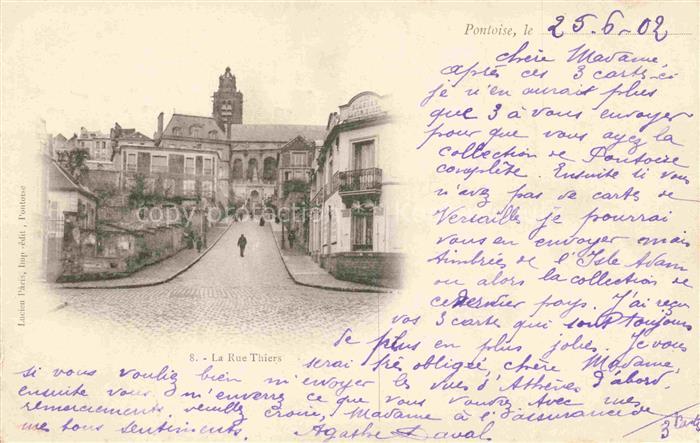 Pontoise, le 25-6-02
chère Madame,
après ces 3 cartes-ci
je n'en aurais plus
que 3 à vous envoyer
pour que vous ayez la
collection de Pontoise
complète. Ensuite si vous
n'avez pas de cartes de
Versailles je pourrai
vous en envoyer mais
timbrées de l'Isle Adam
ou alors la collection de
ce dernier pays. J'ai reçu
vos 3 cartes qui sont toujours
de plus en plus jolies. Je vous
serai très obligée, chère Madame,
si vous vouliez bien m'envoyer les vues d'Athènes d'abord.
ensuite vous m'enverrez ce que vous voudrez. Avec mes
remerciements, veuillez croire, Madame à l'assurance de
me tous sentiments. Agathe
3
8. - La Rue Thiers
Lucien Pâris, Imp.-édit., Pontoise
copy protection